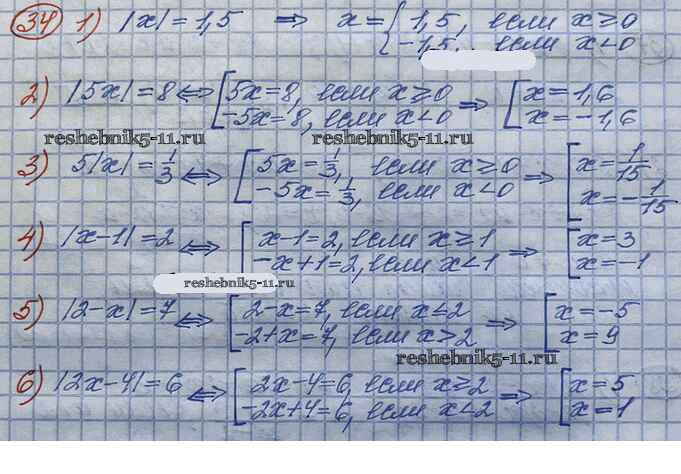 34 1) |x| = 1,5 ⇒ x = { 1,5, если x ≥ 0
-1,5, если x < 0
2) |5x| = 8 ⇔ [ 5x = 8, если x ≥ 0
-5x = 8, если x < 0 ⇒ [ x = 1,6
x = -1,6
reshebnik5-11.ru reshebnik5-11.ru
3) 5|x| = 1/3 ⇔ [ 5x = 1/3, если x ≥ 0
-5x = 1/3, если x < 0 ⇒ [ x = 1/15
x = -1/15
4) |x-1| = 2 ⇔ [ x-1 = 2, если x ≥ 1
-x+1 = 2, если x < 1 ⇒ [ x = 3
x = -1
reshebnik5-11.ru
5) |2-x| = 7 ⇔ [ 2-x = 7, если x ≤ 2
-2+x = 7, если x > 2 ⇒ [ x = -5
x = 9
reshebnik5-11.ru
6) |2x-4| = 6 ⇔ [ 2x-4 = 6, если x ≥ 2
-2x+4 = 6, если x < 2 ⇒ [ x = 5
x = 1